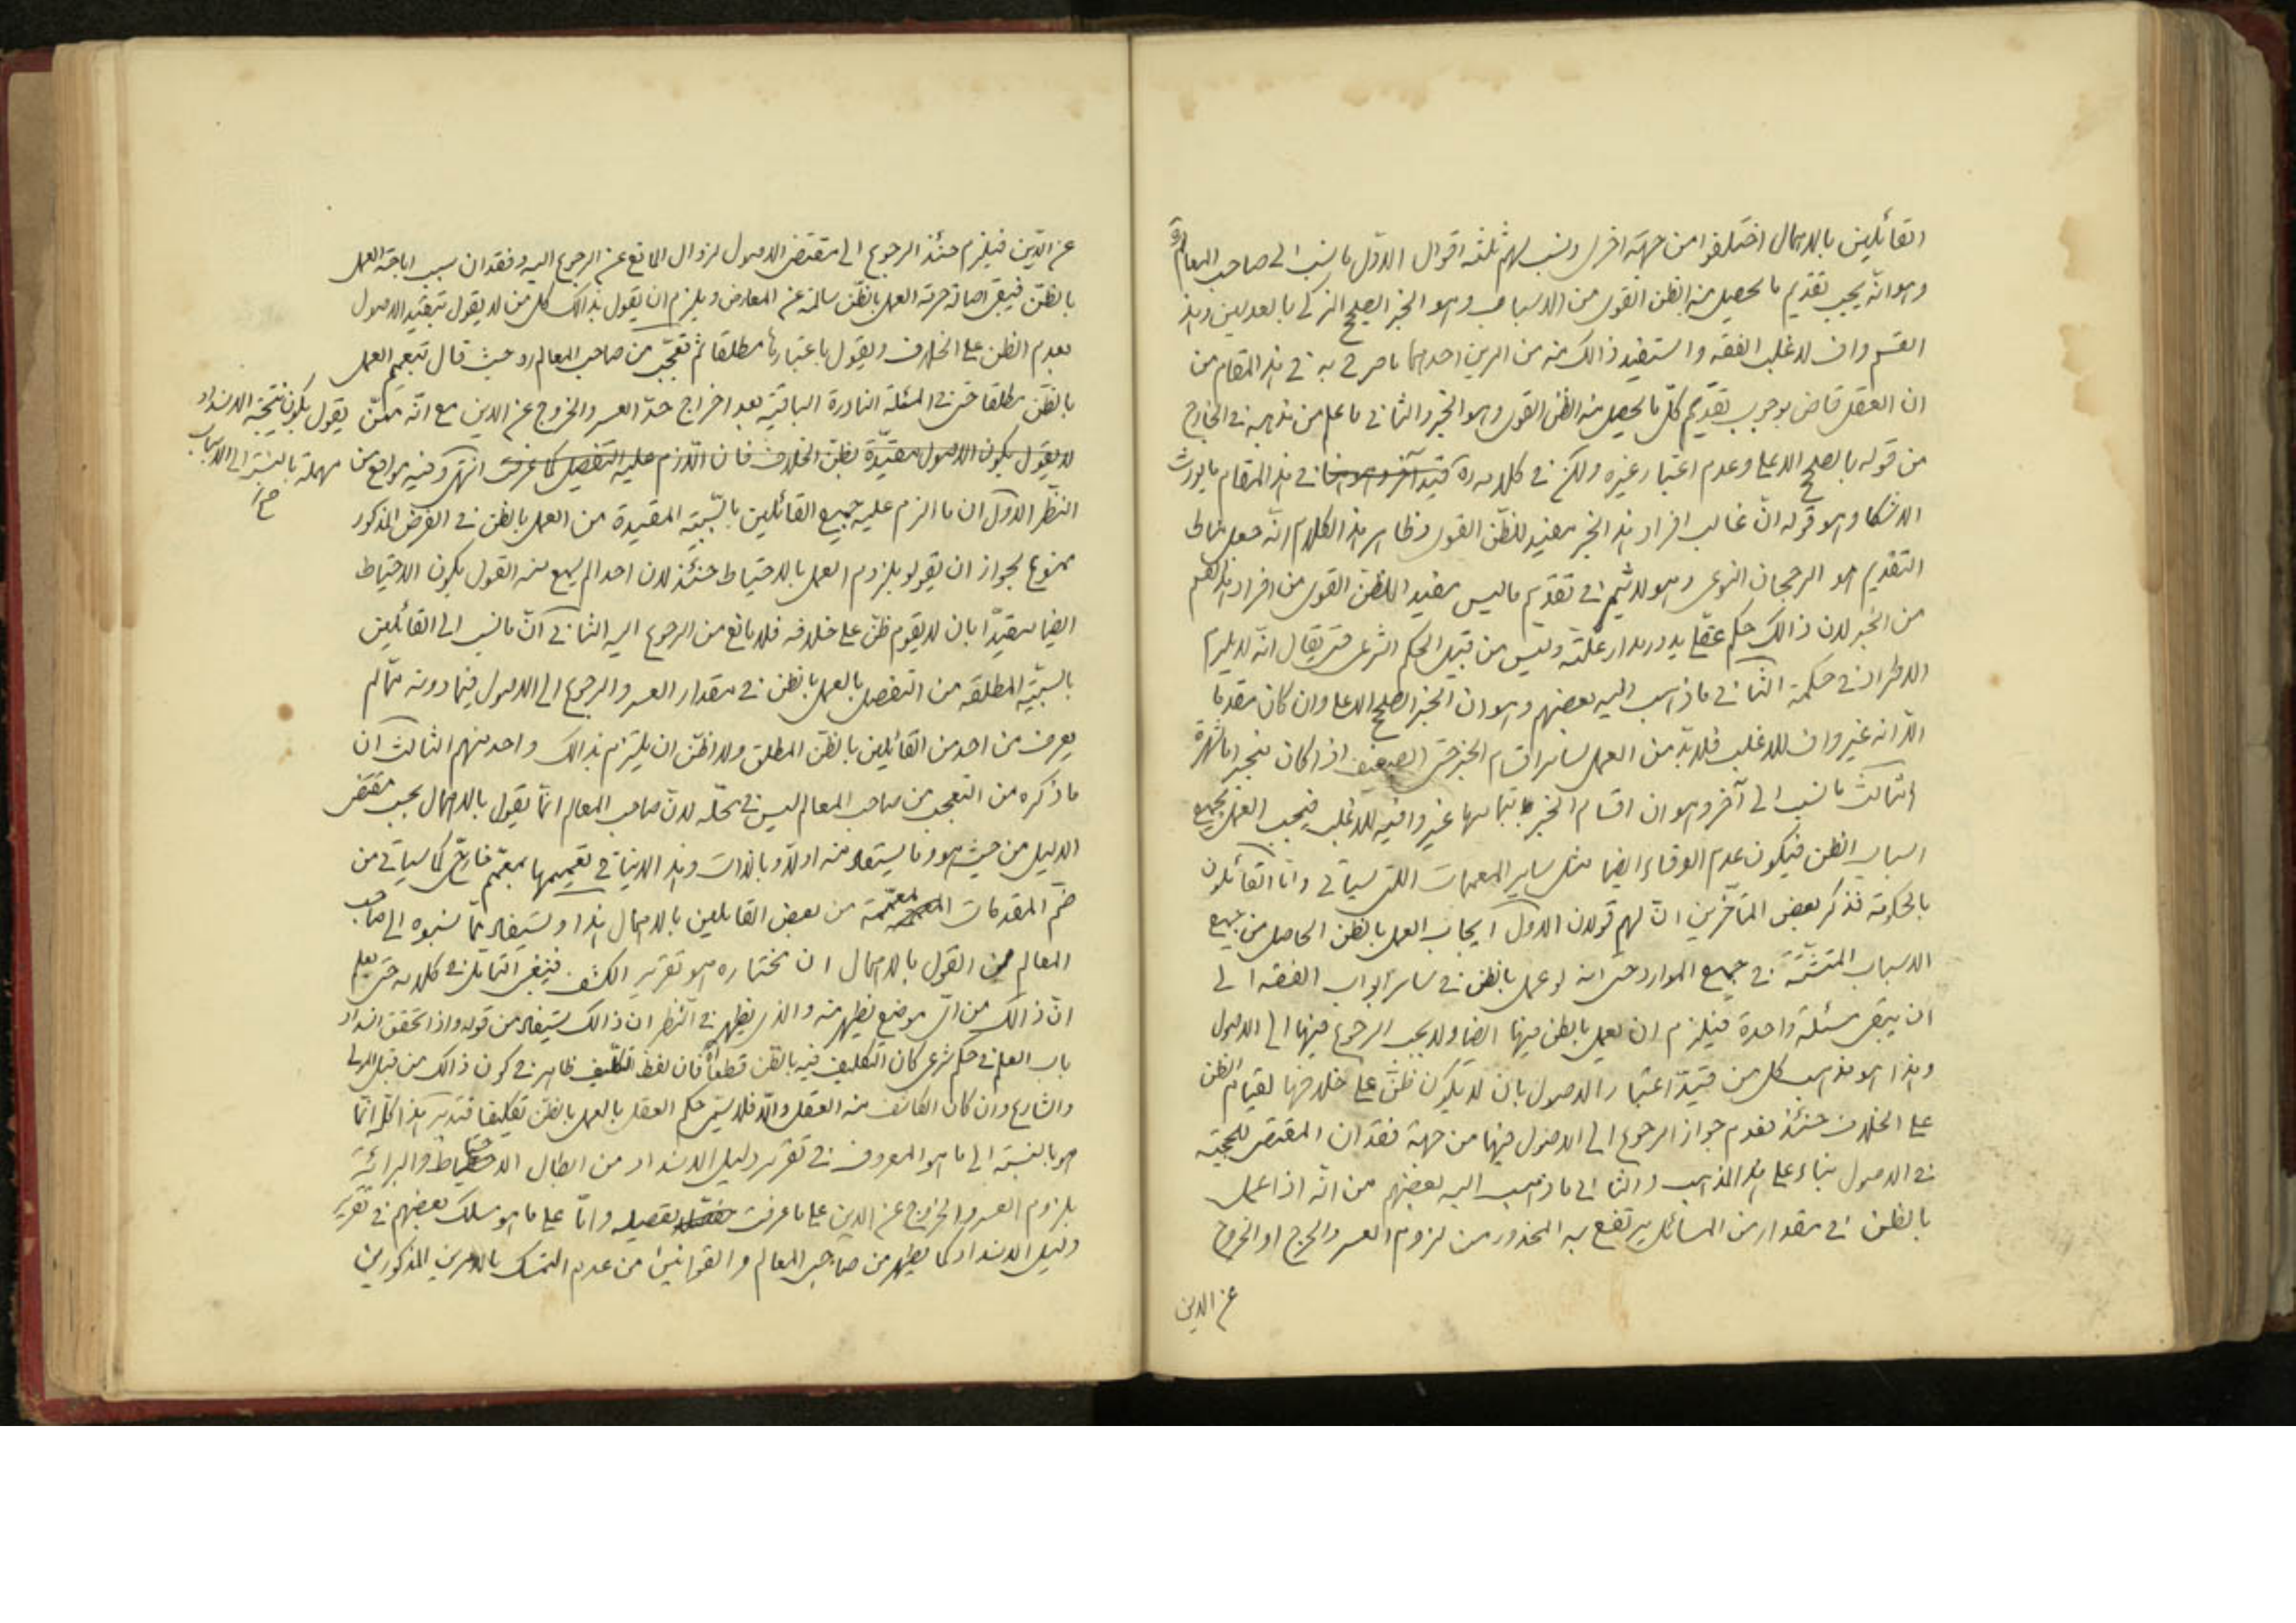 القائلين بالاهمال اختلفوا من جهة اخرى ونسب لهم ثلثة اقوال الاوّل ما نسب الى صاحب المعالم ره
وهو انّه يجب تقديم ما يحصل منه الظن القوى من الاسباب وهو الخبر الصحيح الزكى بالعدلين وهذا
القسم واف لاغلب الفقه واستفيد ذالك منه من امرين احدهما ما صرح به فى هذا المقام من
ان العقل قاض بوجوب تقديم كلّ ما يحصل منه الظن القوى وهو الخبر والثانى ما علم من مذهبه فى الخارج
من قوله بالصحيح الاعلى وعدم اعتبار غيره ولكن فى كلامه ره فى هذا المقام ما يورث
الاشكال وهو قوله انّ غالب افراد هذا الخبر مفيد للظن القوى وظاهر هذا الكلام انّه جعل مناط
التقديم هو الرجحان النوعى وهو لا يتم فى تقديم ما ليس مفيدا للظن القوى من افراد هذا القسم
من الخبر لان ذالك حكم عقلى يدور مدار علّته وليس من قبيل الحكم الشرعى حتى يقال انّه لا يلزم
الاطراد فى حكمه الثانى ما ذهب اليه بعضهم وهو ان الخبر الصحيح الاعلى وان كان مقدما
الّا انه غير واف للاغلب فلا بدّ من العمل بسائر اقسام الخبر حتى الضعيف اذا كان منجبرا بالشهرة
الثالث ما نسب الى آخر وهو ان اقسام الخبر بتمامها غير وافيه للاغلب فيجب العمل بجميع
اسباب الظن فيكون عدم الوفاء ايضا مثل ساير المعممات اللتى سياتى وامّا القائلون
بالحكومة فذكر بعض المتأخرين انّ لهم قولان الاول ايجاب العمل بالظن الحاصل من جميع
الاسباب المتشتّتة فى جميع الموارد حتى انه لو عمل بالظن فى سائر ابواب الفقه الى
ان يبقى مسئلة واحدة فيلزم ان يعمل بالظن فيها ايضا ولا يجب الرجوع فيها الى الاصول
وهذا هو مذهب كل من قيّد اعتبار الاصول بان لا يكون ظنّ على خلافها لقيام الظن
على الخلاف حنئذ فعدم جواز الرجوع الى الاصول فيها من جهة فقدان المقتضى للحجيّة
فى الاصول بناء على هذا المذهب والثانى ما ذهب اليه بعضهم من انّه اذا عمل
بالظن فى مقدار من المسائل يرتفع به المحذور من لزوم العسر والحرج او الخروج
عن الدين
عن الدّين فيلزم حنئذ الرجوع الى مقتضى الاصول لزوال المانع عن الرجوع اليه وفقدان سبب اباحة العمل
بالظنّ فيبقى اصالة حرمة العمل بالظنّ سالمة عن المعارض ويلزم ان يقول بذالك كل من لا يقول بتقييد الاصول
بعدم الظن على الخلاف ويقول باعتبارها مطلقا ثم تعجّب من صاحب المعالم ره حيث قال بتعميم العمل
بالظنّ مطلقا حتى فى المسئلة النادرة الباقية بعد اخراج حدّ العسر والخروج عن الدين مع انّه ممّن يقول بكون نتيجة الانسداد
مهملة بالنسبة الى الاسباب
لا يقول بكون الاصول مقيّدة بظنّ الخلاف فانّ اللازم عليه التفصيل كما عرفت انتهى وفيه مواقع من
النظر الاوّل ان ما الزم عليه جميع القائلين بالسّببيّة المقيدة من العمل بالظن فى الفرض المذكور
ممنوع لجواز ان يقولو بلزوم العمل بالاحتياط حنئذ لان احدا لم يسمع منه القول بكون الاحتياط
ايضا مقيدّا بان لا يقوم ظنّ على خلافه فلا مانع من الرجوع اليه الثانى انّ ما نسب الى القائلين
بالسببيّة المطلقة من التفصيل بالعمل بالظن فى مقدار العسر والرجوع الى الاصول فيما دونه ممّا لم
يعرف من احد من القائلين بالظنّ المطلق ولا اظنّ ان يلتزم بذالك واحد منهم الثالث ان
ما ذكره من التعجب من صاحب المعالم ليس فى محلّه لانّ صاحب المعالم انّما يقول بالاهمال بحسب مقتضى
الدليل من حيث هو وما يستفاد منه اولا وبالذات وهذا لا ينافى تعميمها بمعمّم خارجى كما سياتى من
ضمّ المقدمات المعممة من بعض القايلين بالاهمال هذا ويستفاد ممّا نسبوه الى صاحب
المعالم من القول بالاهمال ان مختاره هو تقرير الكشف فينبغى التأمّل فى كلامه حتى يعلم
انّ ذالك من اىّ موضع يظهر منه والذى يظهر فى النظر ان ذالك يستفاد من قوله واذا تحقق انسداد
باب العلم فى حكم شرعى كان التكليف فيه بالظن قطعا فان لفظ التكليف ظاهر فى كون ذالك من قبل المولى
والشارع وان كان الكاشف منه العقل والّا فلا يسمّى حكم العقل بالعمل بالظنّ تكليفا فتدبر هذا كلّه انّما
هو بالنسبة الى ما هو المعروف فى تقرير دليل الانسداد من ابطال الاحتياط والبرائة
بلزوم العسر والخروج عن الدين على ما عرفت تفصيله وامّا على ما هو مسلك بعضهم فى تقرير
دليل الانسداد كما يظهر من صاحبى المعالم والقوانين من عدم التمسك بالامرين المذكورين